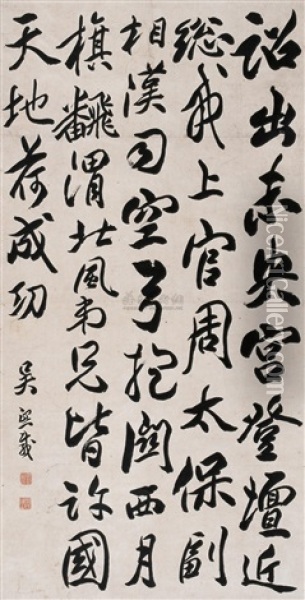 詔出未央宮登壇近
總戎上官周太保副
相漢司空弓抱關西月
旗飜渭北風弟兄皆許國
天地荷成功
吳熙載